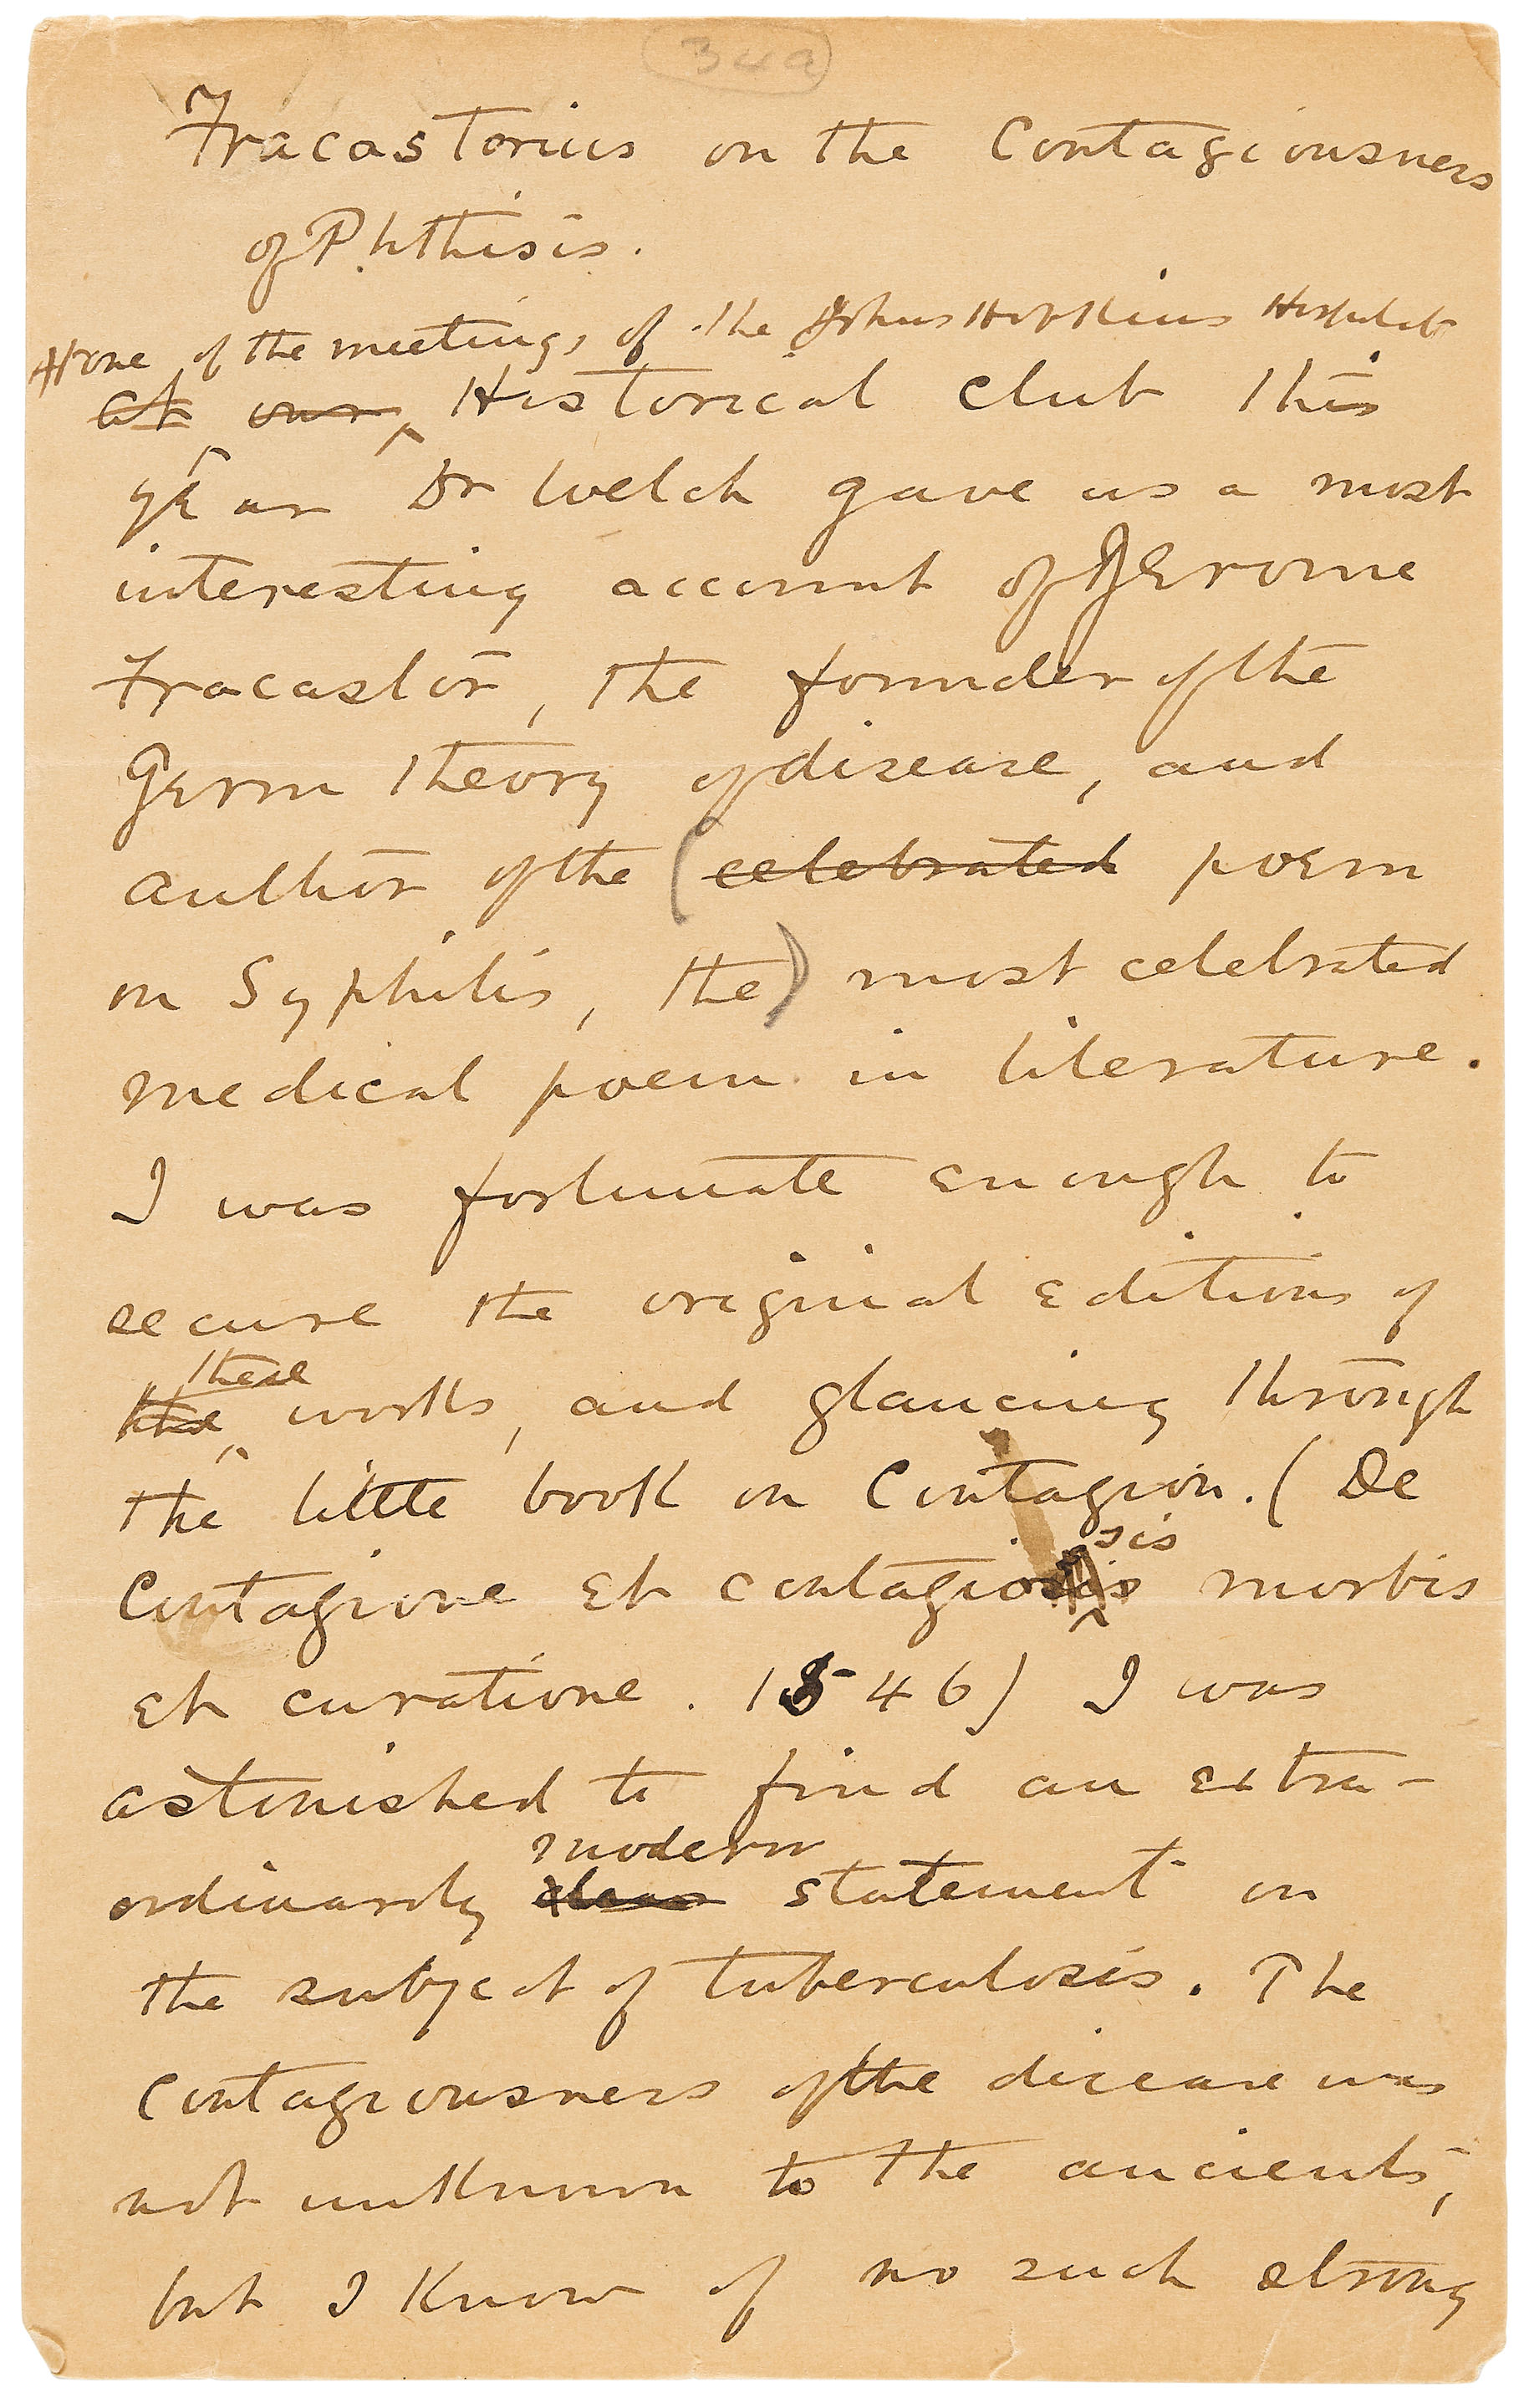 349
Fracastorius on the Contagiousness
of Phthisis.
At one of the meetings of the Johns Hopkins Hospital
at our Historical club this
year Dr Welch gave us a most
interesting account of Jerome
Fracastor, the founder of the
Germ theory of disease, and
author of the (celebrated poem
on Syphilis, the) most celebrated
medical poem in literature.
I was fortunate enough to
secure the original editions of
these
the works, and glancing through
the little book on Contagion. (De
sis
Contagione et contagiosis morbis
et curatione. 1546) I was
astonished to find an extra-
modern
ordinarily clear statement on
the subject of tuberculosis. The
Contagiousness of the disease was
not unknown to the ancients,
but I know of no such strong